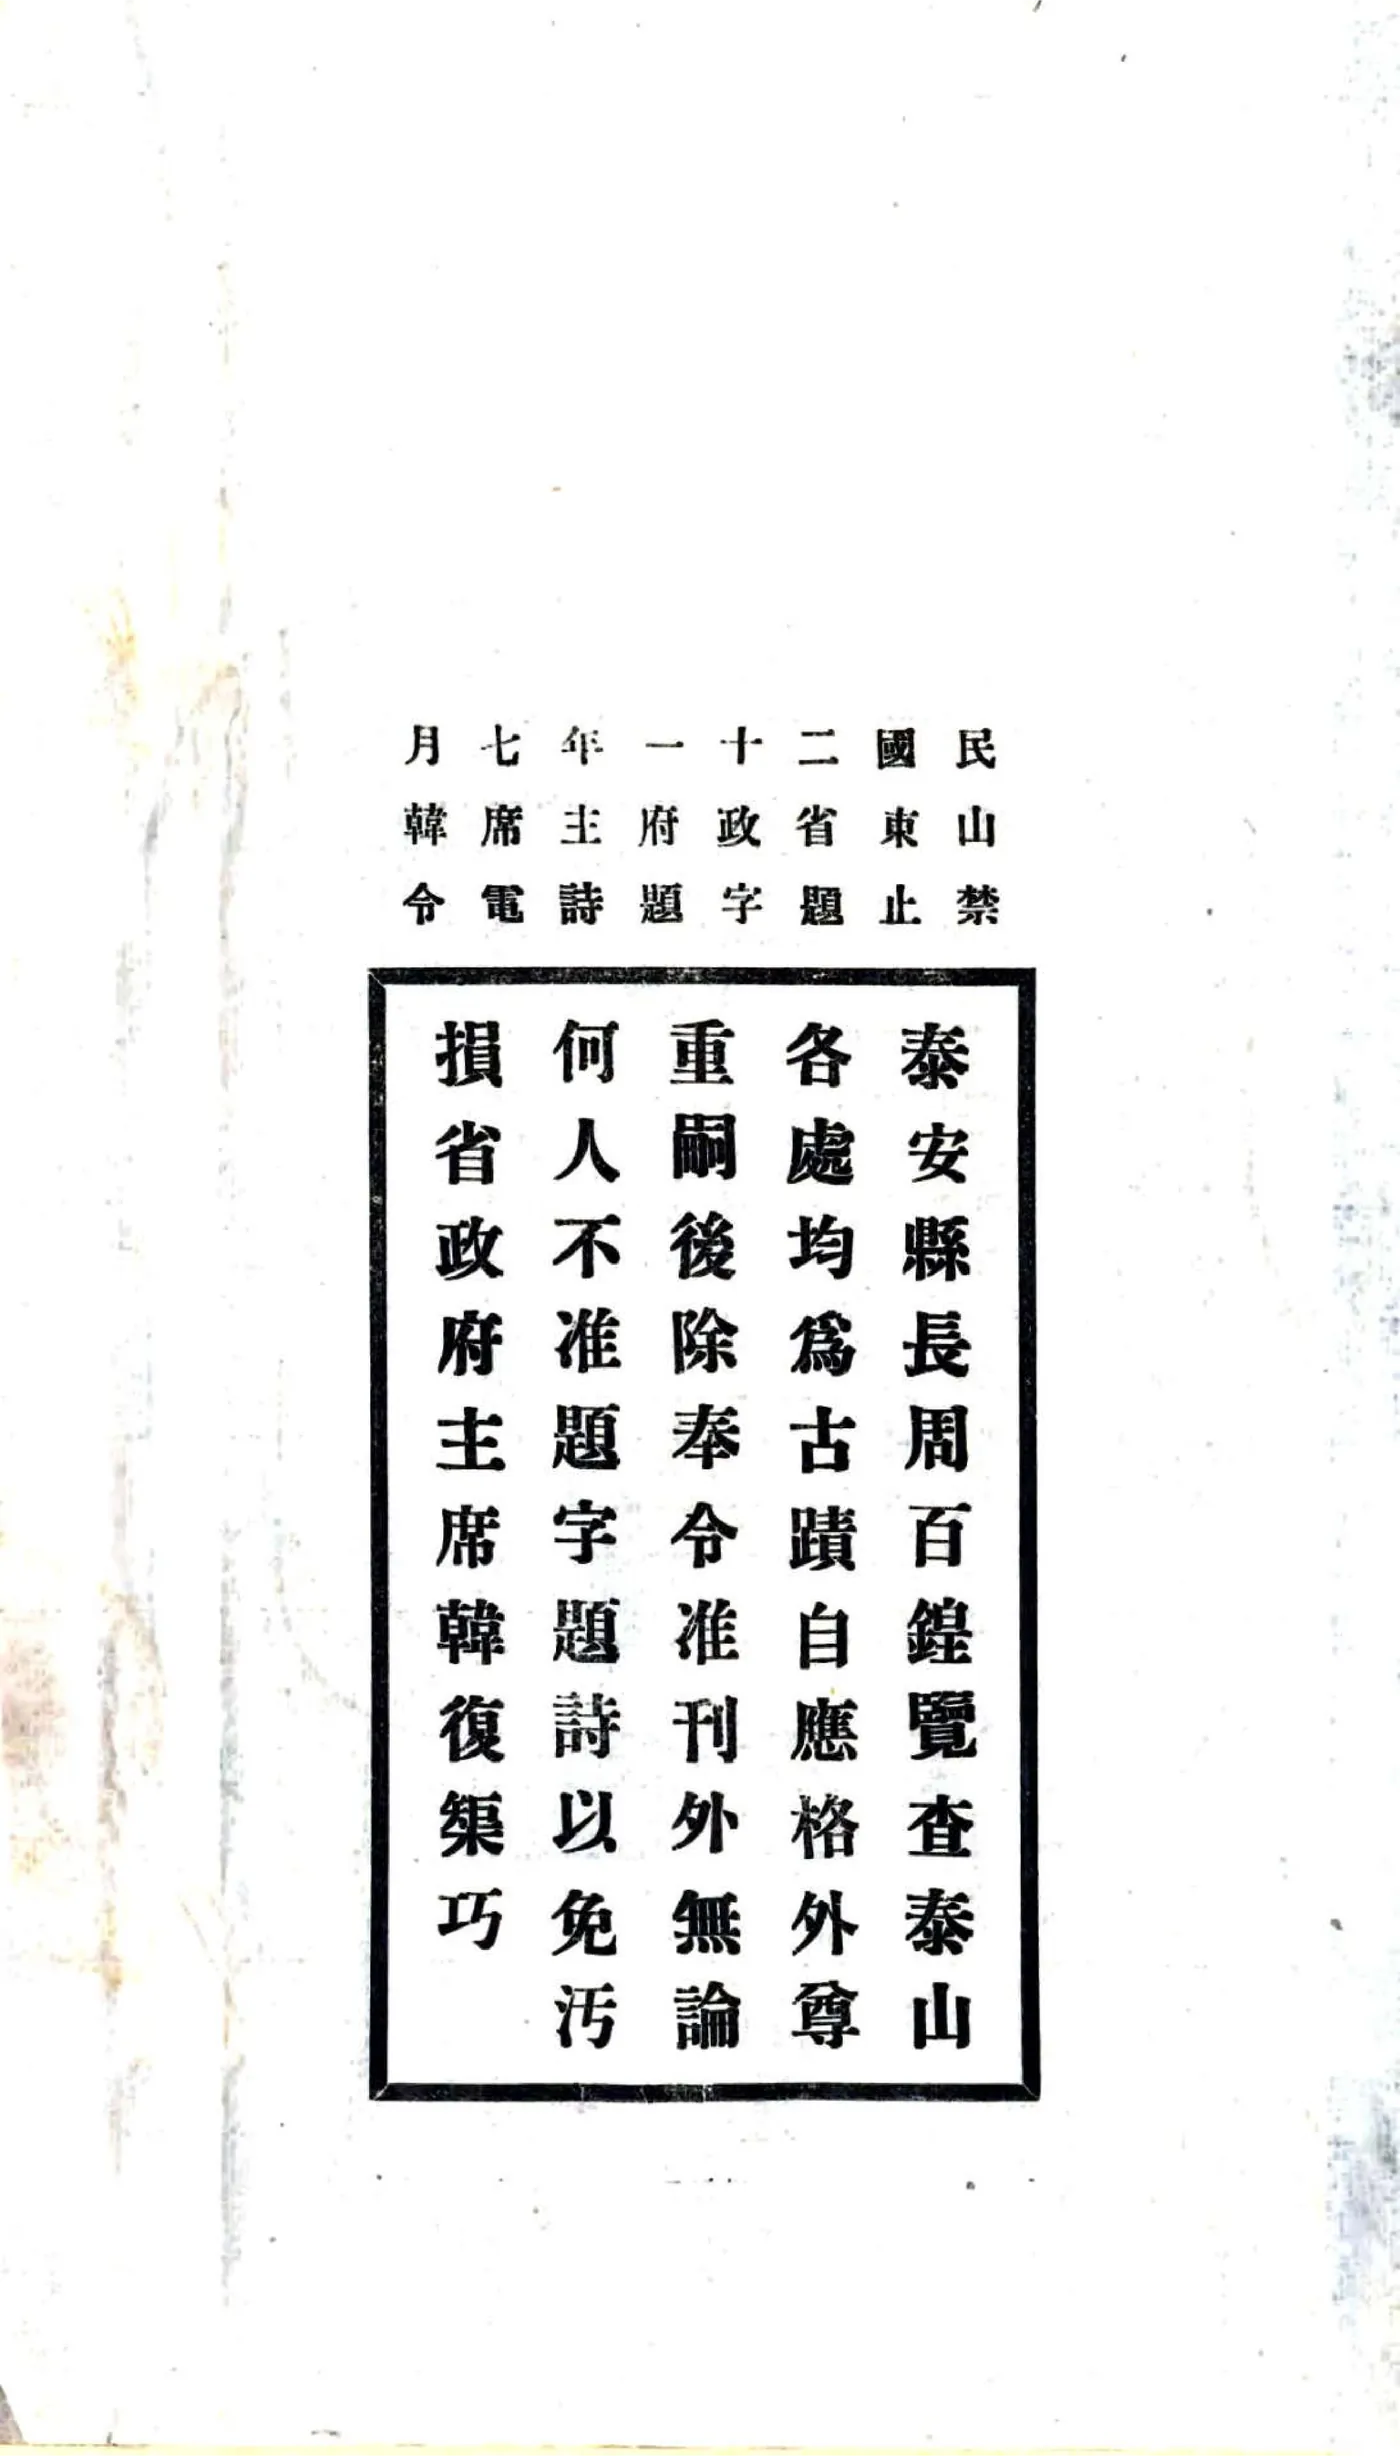 民國二十一年七月
山東省政府主席韓
禁止題字題詩電令
泰安縣長周百鍠覽查泰山
各處均爲古蹟自應格外尊
重嗣後除奉令准刊外無論
何人不准題字題詩以免汚
損省政府主席韓復榘巧